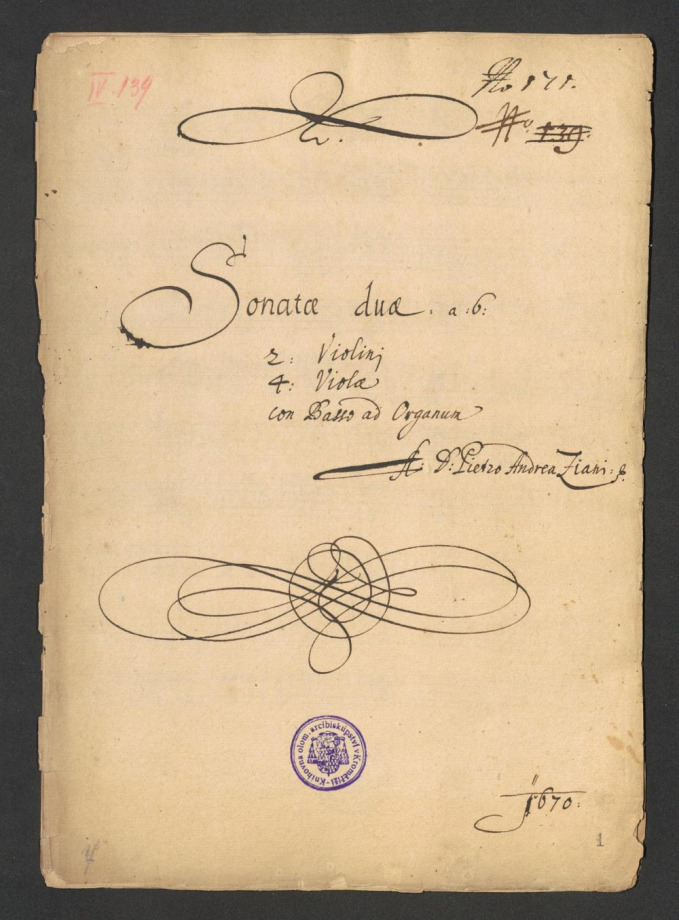 IV 139
No 171.
No 139.
N.
Sonatæ duæ. a :6:
2: Violinj
4: Violæ
con Basso ad Organum
A: D: Pietro Andrea Ziani:
Knihovna olom. arcibiskupství v Kroměříži
1670:
1